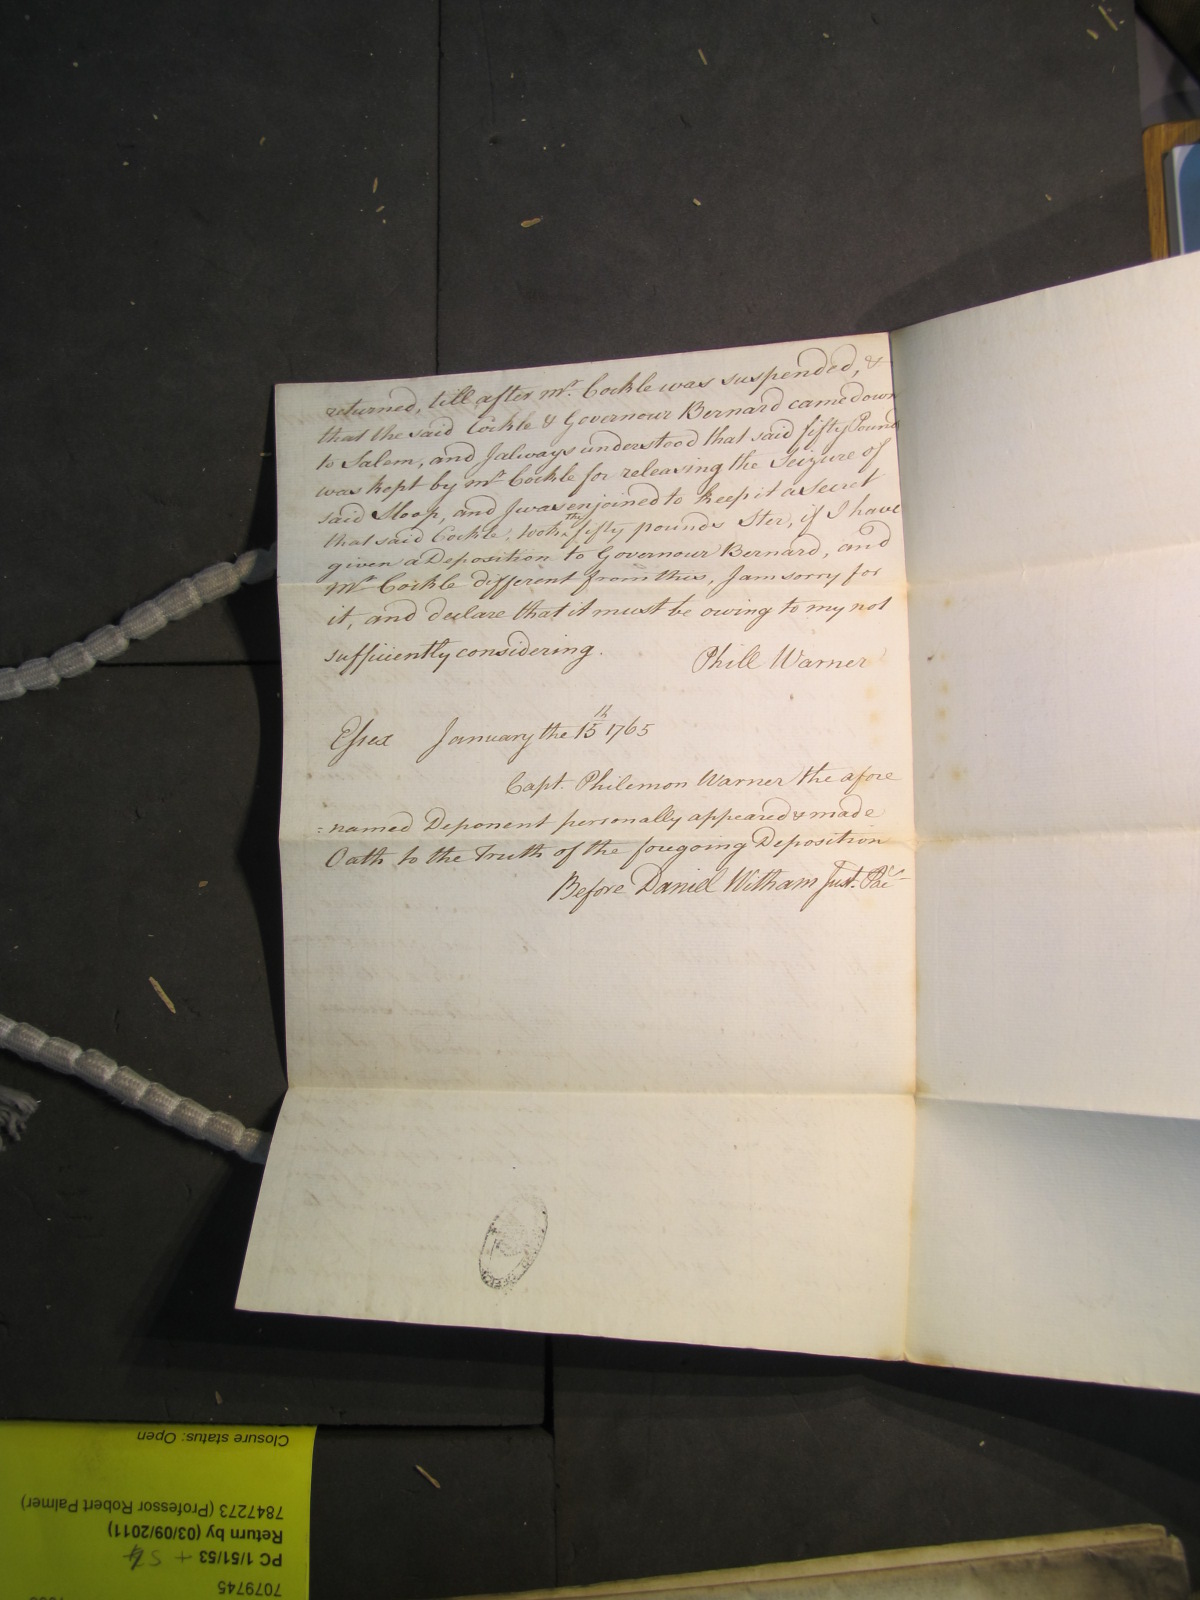 returned, till after Mr. Cockle was suspended, &
that the said Cockle & Governour Bernard came down
to Salem, and I always understood that said fifty Pound
was kept by Mr Cockle for releasing the Seizure of
said Sloop, and I was enjoined to keep it a Secret
that said Cockle, took the fifty pounds Ster, if I have
given a Deposition to Governour Bernard, and
Mr Cockle different from this, I am sorry for
it, and declare that it must be owing to my not
sufficiently considering.
Phill Warner
Essex January the 15th 1765
Capt. Philemon Warner the afore
=named Deponent personally appeared & made
Oath to the Truth of the foregoing Deposition
Before Daniel Witham Just. Pac
7079745
PC 1/51/53 + 54
Return by (03/09/2011)
7847273 (Professor Robert Palmer)
Closure status: Open